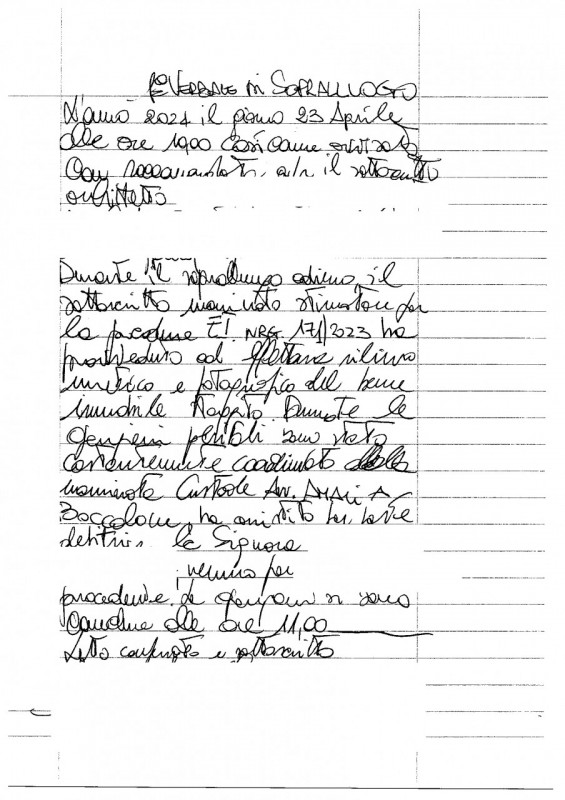 1° VERBALE DI SOPRALLUOGO
L'anno 2024 il giorno 23 Aprile
alle ore 10,00 così come
Con raccomandata, il sottoscritto
architetto
Durante il sopralluogo odierno il
sottoscritto nominato stimatore per
la procedura E.I. NRG. 171/2023 ha
provveduto ad effettuare rilievo
metrico e fotografico del bene
immobile Durante le
operazioni peritali sono stato
costantemente coadiuvato dalla
nominata Custode Avv. AMALIA
Boccalone, ha assistito per
la Signora
per
procedente, le operazioni si sono
concluse alle ore 11,00
Letto confermato e sottoscritto